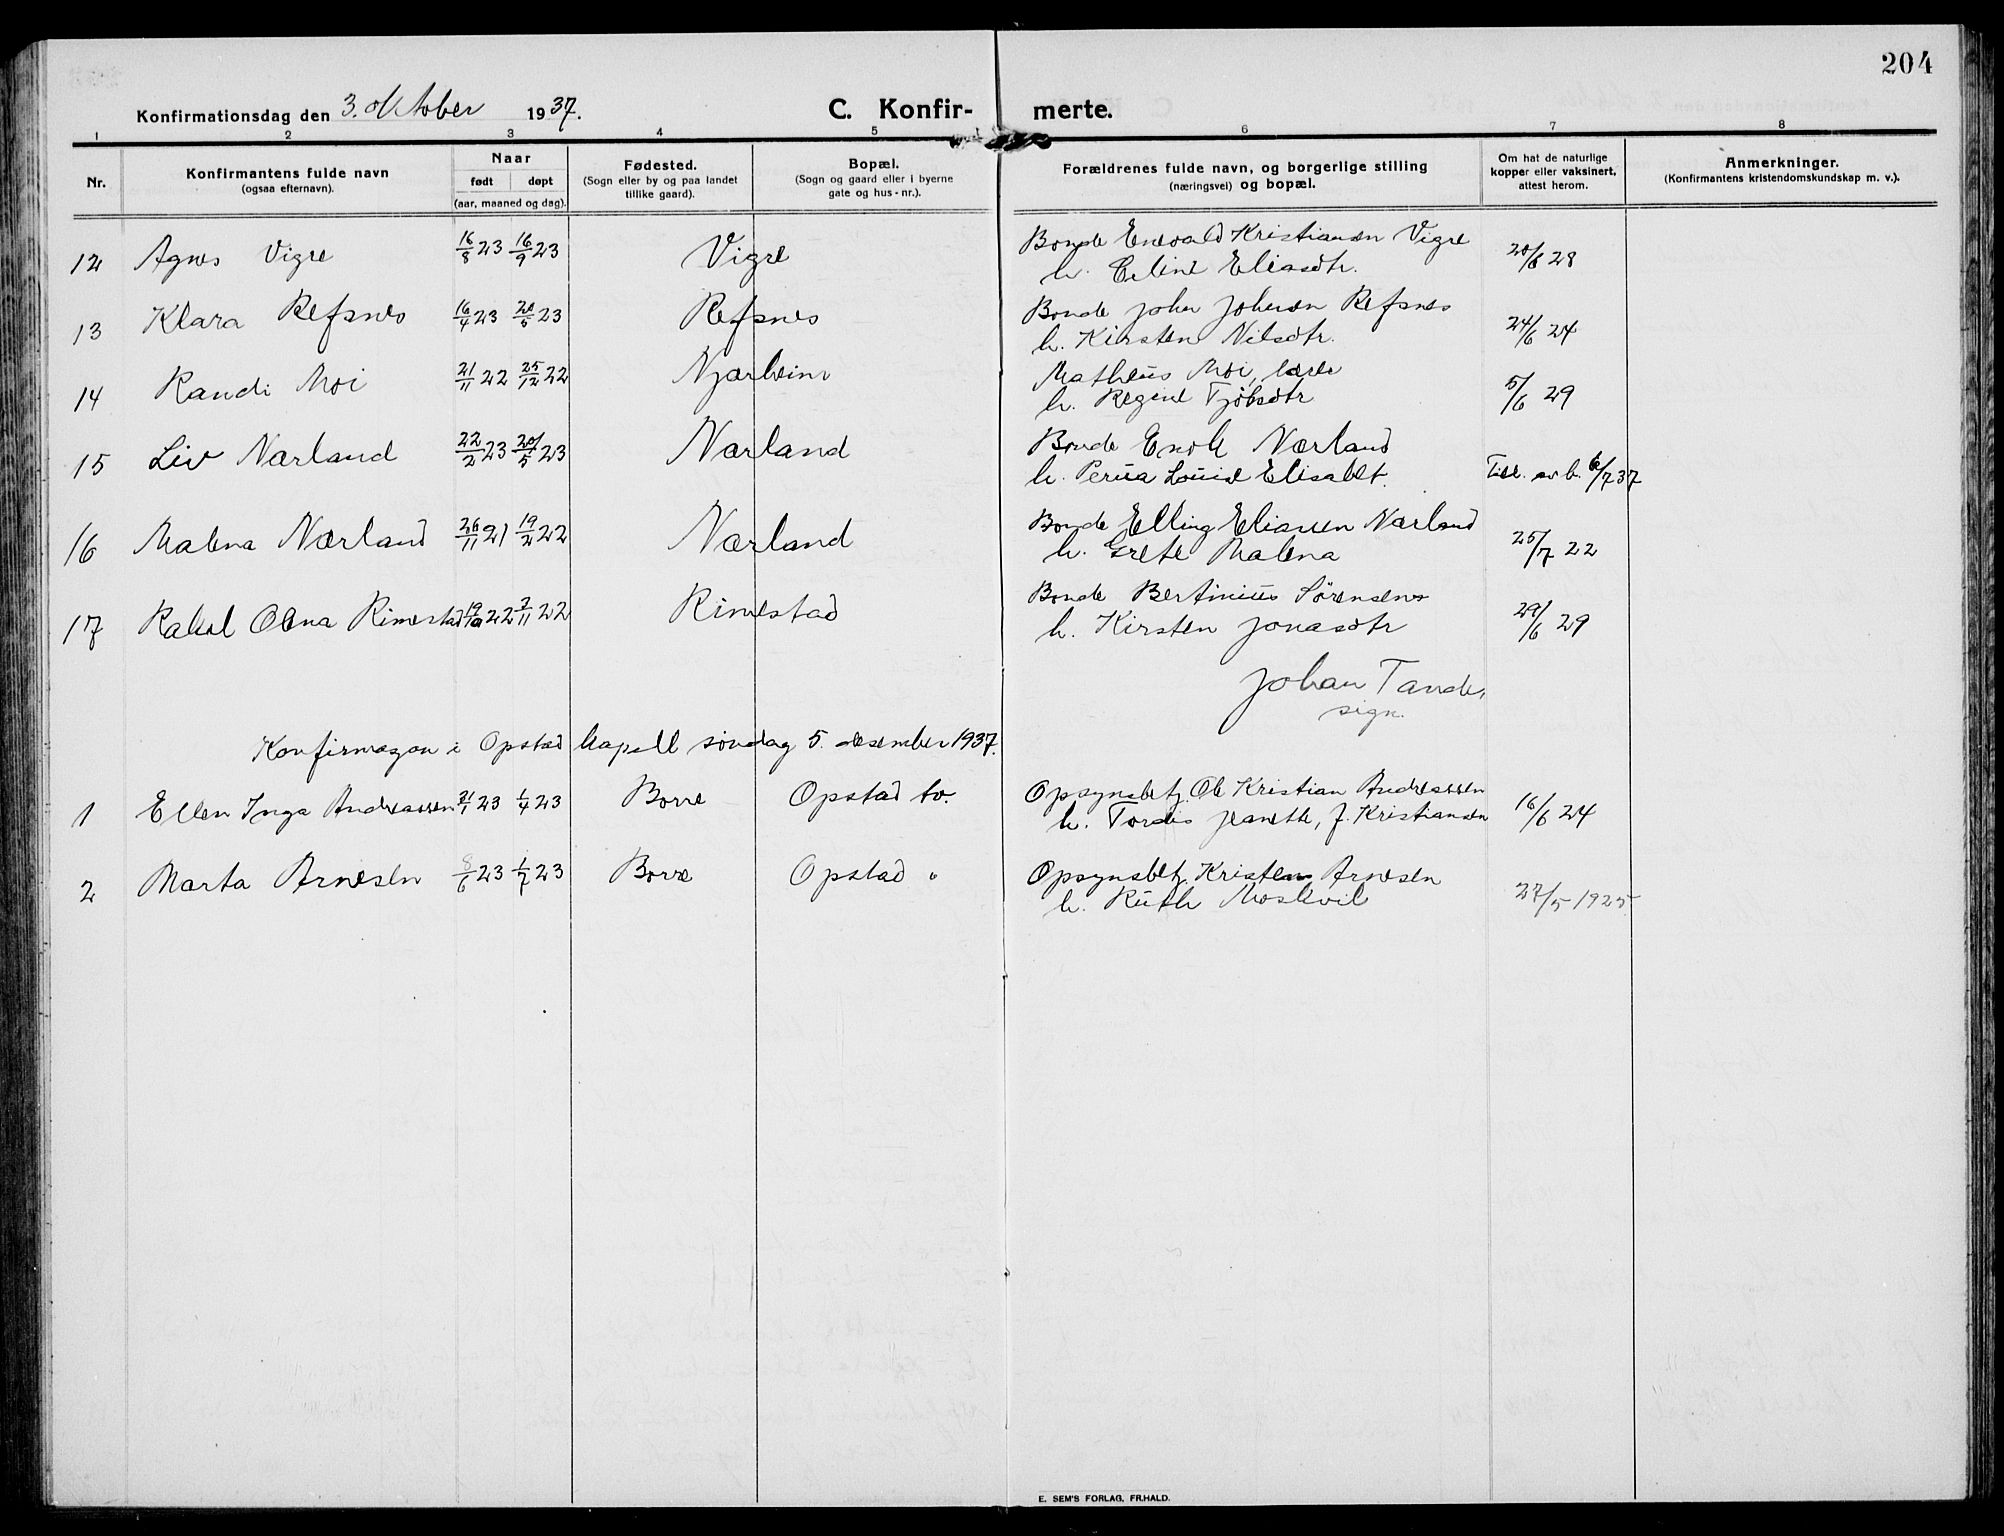 204
Konfirmationsdag den 3. oktober 1937.
C. Konfir-merte.
1 2 3 4 5 6 7 8
Nr.
Konfirmantens fulde navn
(ogsaa efternavn).
Naar
født døpt
(aar, maaned og dag).
Fødested.
(Sogn eller by og paa landet
tillike gaard).
Bopæl.
(Sogn og gaard eller i byerne
gate og hus-nr.).
Forældrenes fulde navn, og borgerlige stilling
(næringsvei) og bopæl.
Om hat de naturlige
kopper eller vaksinert,
attest herom.
Anmerkninger.
(Konfirmantens kristendomskundskap m. v.).
12 Agnes Vigre 16/8 23 16/9 23 Vigre Bonde Enevald Kristiansen Vigre 20/6 28
h. Eline Eliasdtr.
13 Klara Refsnes 16/4 23 20/5 23 Refsnes Bonde John Johnsen Refsnes 24/6 24
h. Kirsten Nilsdtr.
14 Randi Moi 21/11 22 25/12 22 Njærheim Matheus Moi, lærer 5/6 29
h. Regine Tjöbsdtr
15 Liv Nærland 22/2 23 20/5 23 Nærland Bonde Enok Nærland
h. Perua Louise Elisabet. 6/7 37
16 Malena Nærland 26/11 21 19/2 22 Nærland Bonde Elling Eliassen Nærland 25/7 22
h. Grete Malena
17 Rakel Olena Rimestad 19/10 22 3/11 22 Rimestad Bonde Bertinius Sörensen 29/6 29
h. Kirsten Jonasdtr
Johan Tande,
sign.
Konfirmasjon i Opstad kapell söndag 5. desember 1937.
1 Ellen Inga Andreassen 21/1 23 1/4 23 Borre Opstad tv. Opsynsbetj. Ole Kristian Andreassen 16/6 24
h. Tordis Jeanette, f. Kristiansen
2 Marta Arnesen 8/6 23 1/7 23 Borre Opstad " Opsynsbetj. Kristen Arnesen 27/5 1925.
h. Ruth Moskvil
E. SEM'S FORLAG, FR.HALD.